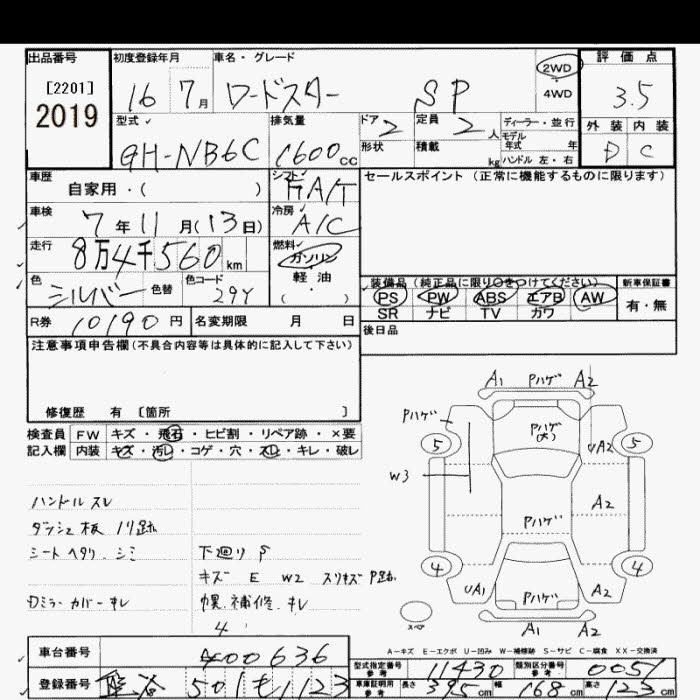 出品番号 初度登録年月 車名・グレード 評価点
[2201]
2019
16 7月 ロードスター SP
2WD
4WD
3.5
型式 排気量 ドア 定員 ディーラー・並行 外装 内装
GH-NB6C 1600cc 2 2人 モデル年式 年 D C
形状 積載 kg ハンドル 左・右
車歴 自家用・( ) シフト FA/T セールスポイント(正常に機能するものに限ります)
車検 7年11月(13日) 冷房 A/C
走行 8万4千560km 燃料 ガソリン
軽・油
( )
色 シルバー 色替 色コード 29Y
装備品(純正品に限り○をつけてください) 新車保証書
PS PW ABS エアB AW 有・無
SR ナビ TV カワ
R券 10190円 名変期限 月 日 後日品
注意事項申告欄(不具合内容等は具体的に記入して下さい)
修復歴 有 [箇所 ]
検査員 FW キズ・飛石・ヒビ割・リペア跡・×要
記入欄 内装 キズ・汚レ・コゲ・穴・スレ・キレ・破レ
ハンドル スレ
ダッシュ板 ノリ跡
シート ヘタリ、シミ
下廻り S
キズ E W2 スリキズ P跡
Dミラーカバーキレ
幌、補修、キレ
4
A1 Pハゲ A2
Pハゲ
Pハゲ
(大)
5 5
UA2
W3
A2
Pハゲ
4 4
UA1 Pハゲ A2
スペア
A1 A2
A-キズ E-エクボ U-凹み W-補修跡 S-サビ C-腐食 XX-交換済
車台番号 400636
型式指定番号 参考 11430 類別区分番号 参考 0051
登録番号 501 も 1123
車庫証明用 参考 長さ 395cm 幅 168cm 高さ 123cm